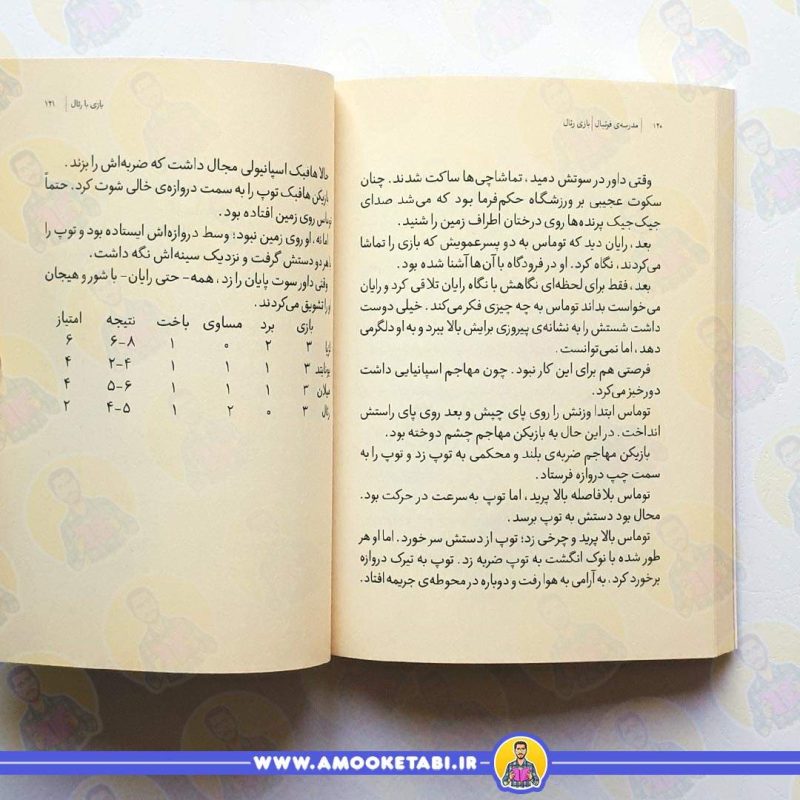 ۱۲۰ | مدرسه‌ی فوتبال | بازی رئال
وقتی داور در سوتش دمید، تماشاچی‌ها ساکت شدند. چنان
سکوت عجیبی بر ورزشگاه حکم‌فرما بود که می‌شد صدای
جیک‌جیک پرنده‌ها روی درختان اطراف زمین را شنید.
بعد، رایان دید که توماس به دو پسرعمویش که بازی را تماشا
می‌کردند، نگاه کرد. او در فرودگاه با آن‌ها آشنا شده بود.
بعد، فقط برای لحظه‌ای نگاهش با نگاه رایان تلاقی کرد و رایان
می‌خواست بداند توماس به چه چیزی فکر می‌کند. خیلی دوست
داشت شستش را به نشانه‌ی پیروزی برایش بالا ببرد و به او دلگرمی
دهد، اما نمی‌توانست.
فرصتی هم برای این کار نبود. چون مهاجم اسپانیایی داشت
دورخیز می‌کرد.
توماس ابتدا وزنش را روی پای چپش و بعد روی پای راستش
انداخت. در این حال به بازیکن مهاجم چشم دوخته بود.
بازیکن مهاجم ضربه‌ی بلند و محکمی به توپ زد و توپ را به
سمت چپ دروازه فرستاد.
توماس بلافاصله بالا پرید، اما توپ به‌سرعت در حرکت بود.
محال بود دستش به توپ برسد.
توماس بالا پرید و چرخی زد؛ توپ از دستش سر خورد. اما او هر
طور شده با نوک انگشت به توپ ضربه زد. توپ به تیرک دروازه
برخورد کرد، به آرامی به هوا رفت و دوباره در محوطه‌ی جریمه افتاد.
بازی با رئال | ۱۲۱
حالا هافبک اسپانیولی مجال داشت که ضربه‌اش را بزند.
بازیکن هافبک توپ را به سمت دروازه‌ی خالی شوت کرد. حتماً
توماس روی زمین افتاده بود.
اما نه، او روی زمین نبود؛ وسط دروازه‌اش ایستاده بود و توپ را
با هر دو دستش گرفت و نزدیک سینه‌اش نگه داشت.
وقتی داور سوت پایان را زد، همه- حتی رایان- با شور و هیجان
او را تشویق می‌کردند.
بازی برد مساوی باخت نتیجه امتیاز
۳ ۲ ۰ ۱ ۶-۸ ۶
یونایتد ۳ ۱ ۱ ۱ ۲-۴ ۴
میلان ۳ ۱ ۱ ۱ ۶-۵ ۴
رئال ۳ ۰ ۲ ۱ ۴-۵ ۲
WWW.AMOOKETABI.IR